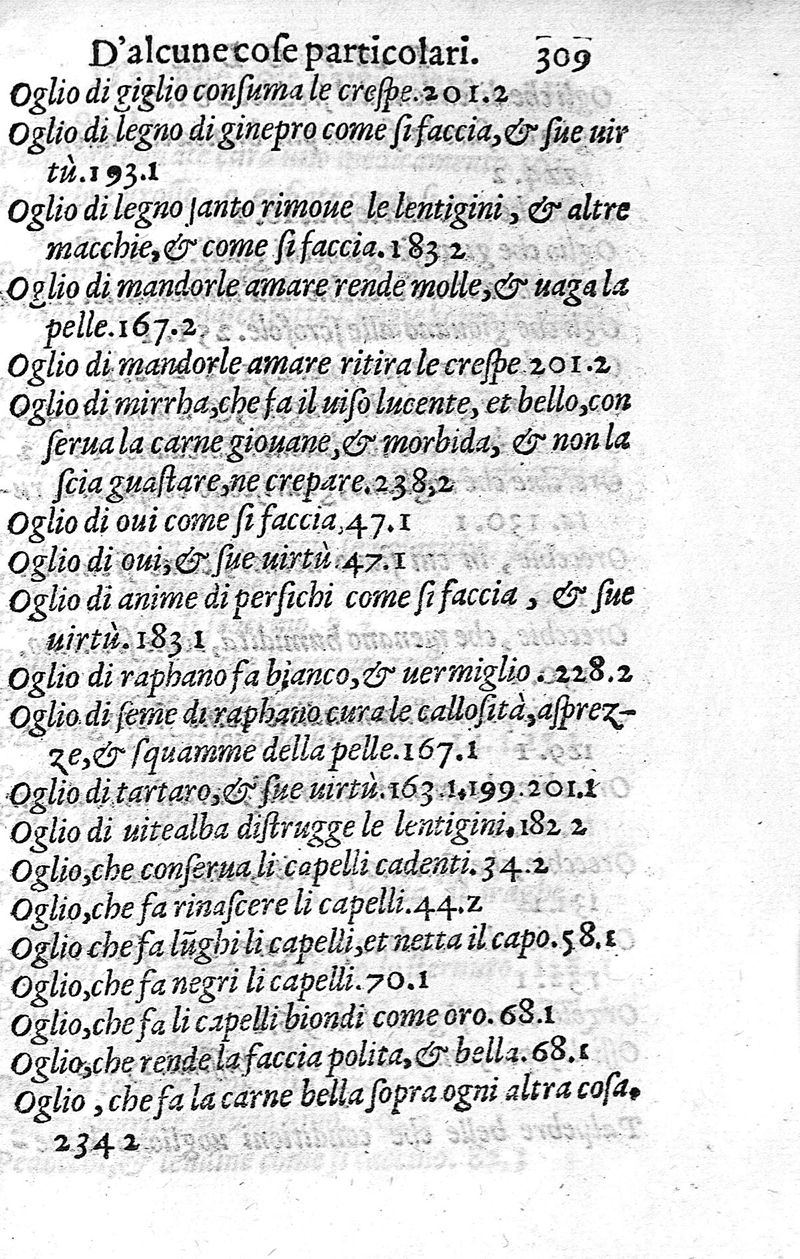 D'alcune cose particolari. 309
Oglio di giglio conſuma le creſpe.201.2
Oglio di legno di ginepro come ſi faccia,& ſue uir
tù.193.1
Oglio di legno ſanto rimoue le lentigini, & altre
macchie,& come ſi faccia.183 2
Oglio di mandorle amare rende molle,& uaga la
pelle.167.2
Oglio di mandorle amare ritira le creſpe 201.2
Oglio di mirrha,che fa il uiſo lucente, et bello,con
ſerua la carne giouane,& morbida, & non la
ſcia guaſtare,ne crepare.238,2
Oglio di oui come ſi faccia,47.1
Oglio di oui,& ſue uirtù.47.1
Oglio di anime di perſichi come ſi faccia, & ſue
uirtù.183 1
Oglio di raphano fa bianco,& uermiglio.228.2
Oglio di ſeme di raphano cura le calloſità,aſprez-
ze,& ſquamme della pelle.167.1
Oglio di tartaro,& ſue uirtù.163.1.199.201.1
Oglio di uitealba diſtrugge le lentigini.182 2
Oglio,che conſerua li capelli cadenti.34.2
Oglio,che fa rinaſcere li capelli.44.2
Oglio che fa lũghi li capelli,et netta il capo.58.1
Oglio,che fa negri li capelli.70.1
Oglio,che fa li capelli biondi come oro.68.1
Oglio,che rende la faccia polita,& bella.68.1
Oglio, che fa la carne bella ſopra ogni altra coſa.
234 2